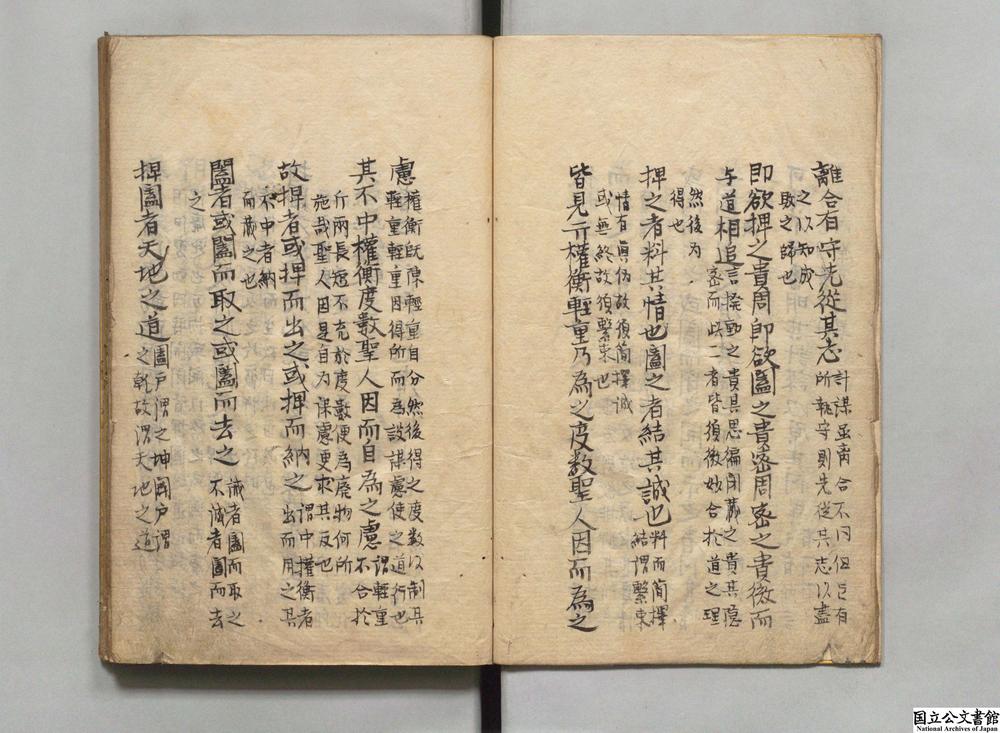 離合有守先從其志計謀虽离合不同但已有
之以知成所執守則先從其志以盡
敗之歸也
即欲捭之貴周即欲闔之貴密周密之貴微而
与道相追言撥動之貴其思徧閉藏之貴其隠
密而此二者皆須微妙合扵道之理
然後为
得也
捭之者料其情也闔之者結其誠也料而簡擇
結謂繫束
情有真伪故須简擇誠
或無終故須繫束也
皆見亓權衡輕重乃為之度数聖人因而為之
慮權衡既陳輕重自分然後得之度数以制其
輕重輕重因得所而為設謀慮使之道行也
其不中權衡度數聖人因而自為之慮謂輕重
不合扵
斤兩長短不充扵度數便為廃物何所
施哉聖人因是自为谋慮更求其反也
故捭者或捭而出之或捭而納之謂中權衡者
出而用之其
不中者納
而藏之也
闔者或闔而取之或闔而去之誠者闔而取之
不誠者闔而去
之
捭闔者天地之道闔户謂之坤闢户謂
之乾故謂天地之道
国立公文書館
National Archives of Japan